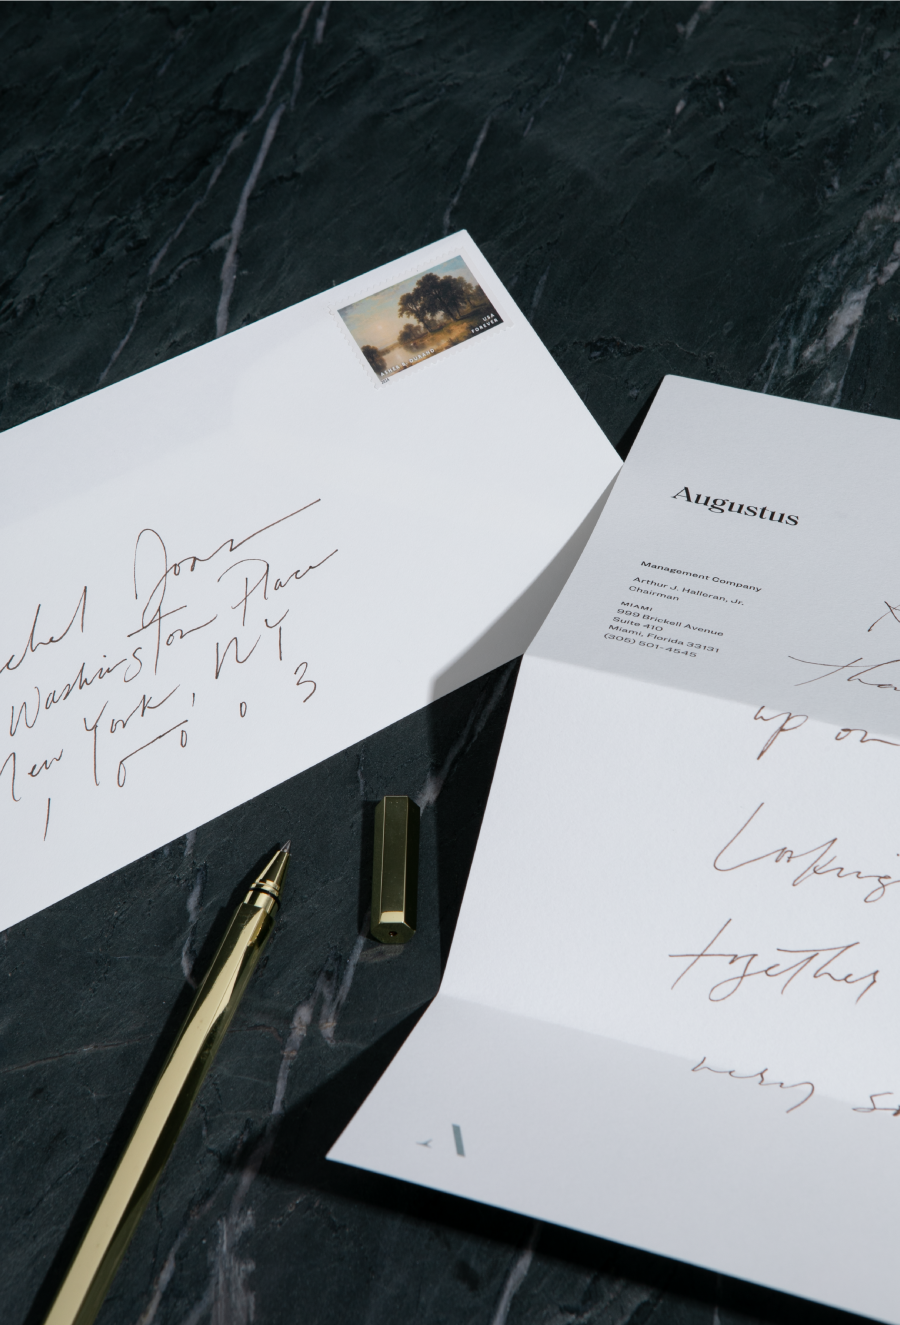 USA
FOREVER
ASHER B. DURAND
Washington Place
New York, NY
10003
Augustus
Management Company
Arthur J. Halleran, Jr.
Chairman
MIAMI
999 Brickell Avenue
Suite 410
Miami, Florida 33131
(305) 501-4545
up on
Looking
together
very